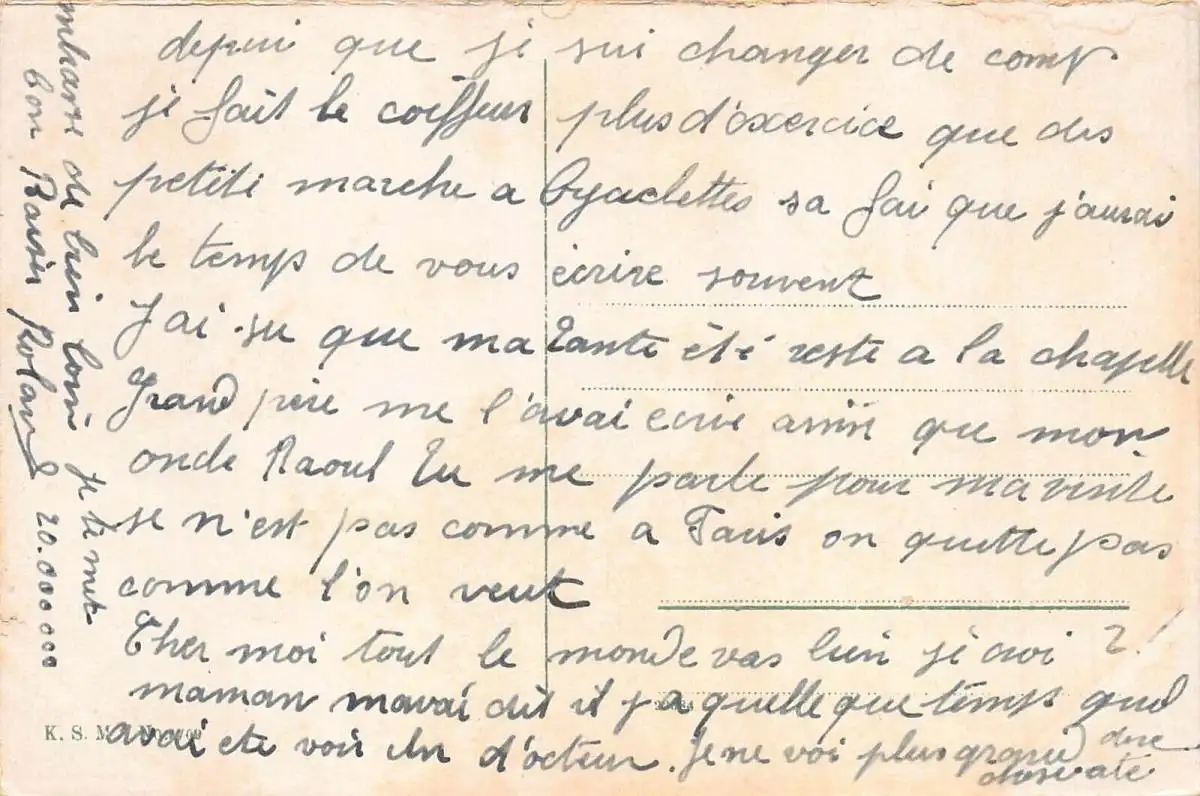 depui que je sui changer de comp
je fait le coiffeur plus d'exercice que des
petite marche a byaclettes sa fai que j'aurai
le temps de vous écrire souvent
J'ai su que ma tante été reste a la chapelle
Grand père me l'avai ecrie ainsi que mon
oncle Raoul Tu me parle pour ma visite
se n'est pas comme a Paris on quitte pas
comme l'on veut
Cher moi tout le monde vas bien je croi ?!
maman mavai dit il y a quelle que temps quel
avai ete voir un d'octeur. Je ne voi plus grand
chose a te dire
embrasse de bien loin je te met
bon Baiser Roland 20.000000
K. S. M.